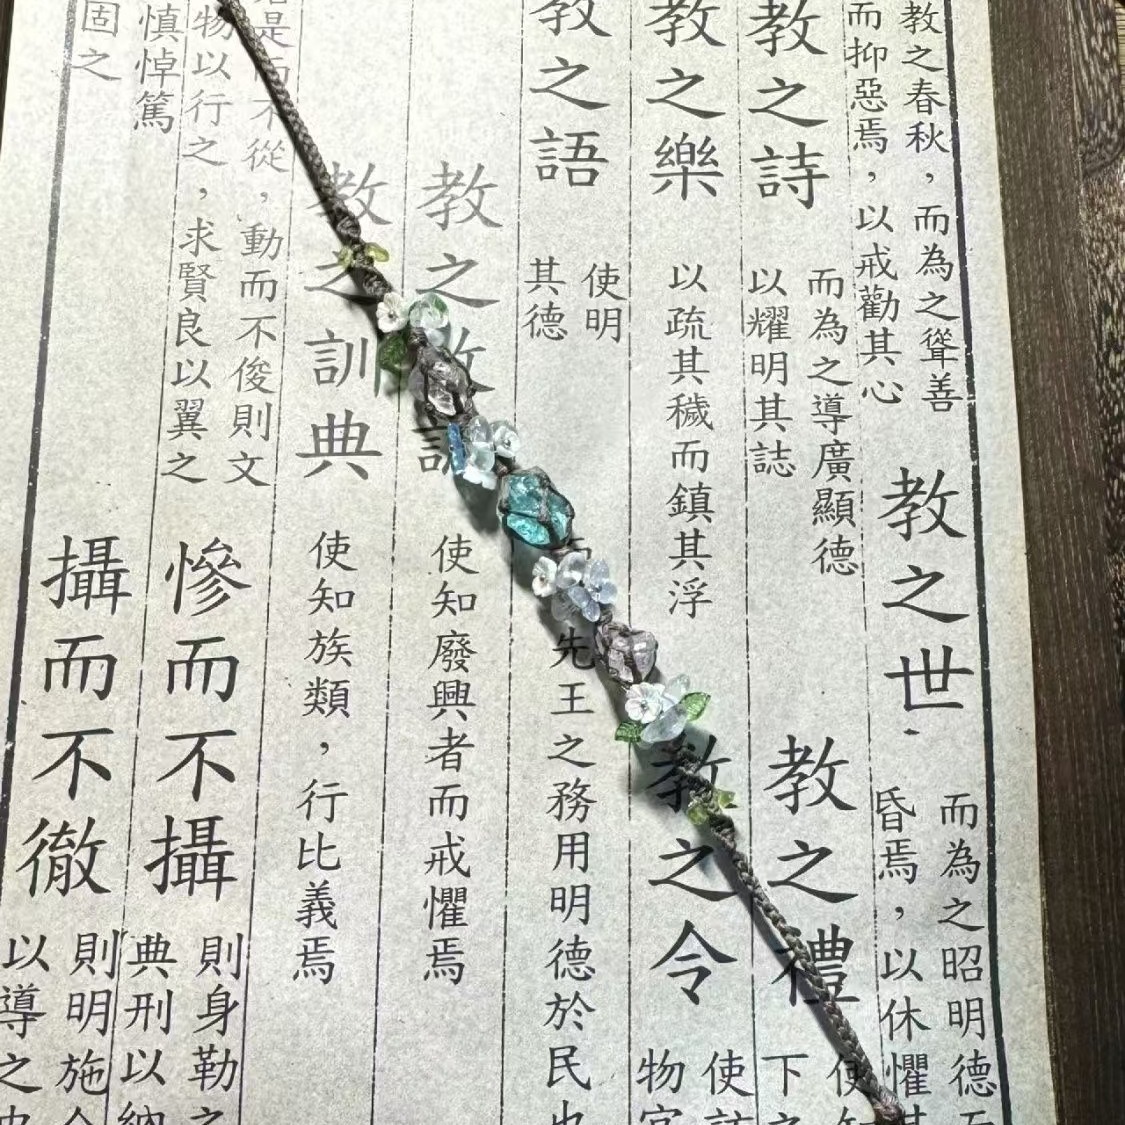 教之春秋，而為之聳善
而抑惡焉，以戒勸其心
教之世
而為之昭明德而
昏焉，以休懼其
教之詩
而為之導廣顯德
以耀明其誌
教之禮
使
下之
教之樂
以疏其穢而鎮其浮
教之令
使訪
物官
教之語
使明
其德
先王之務用明德於民也
教之
使知廢興者而戒懼焉
教之訓典
使知族類，行比義焉
是而不從，動而不俊則文
物以行之，求賢良以翼之
慘而不攝
則身勒之
典刑以納
慎悼篤
固之
攝而不徹
則明施令
以導之忠